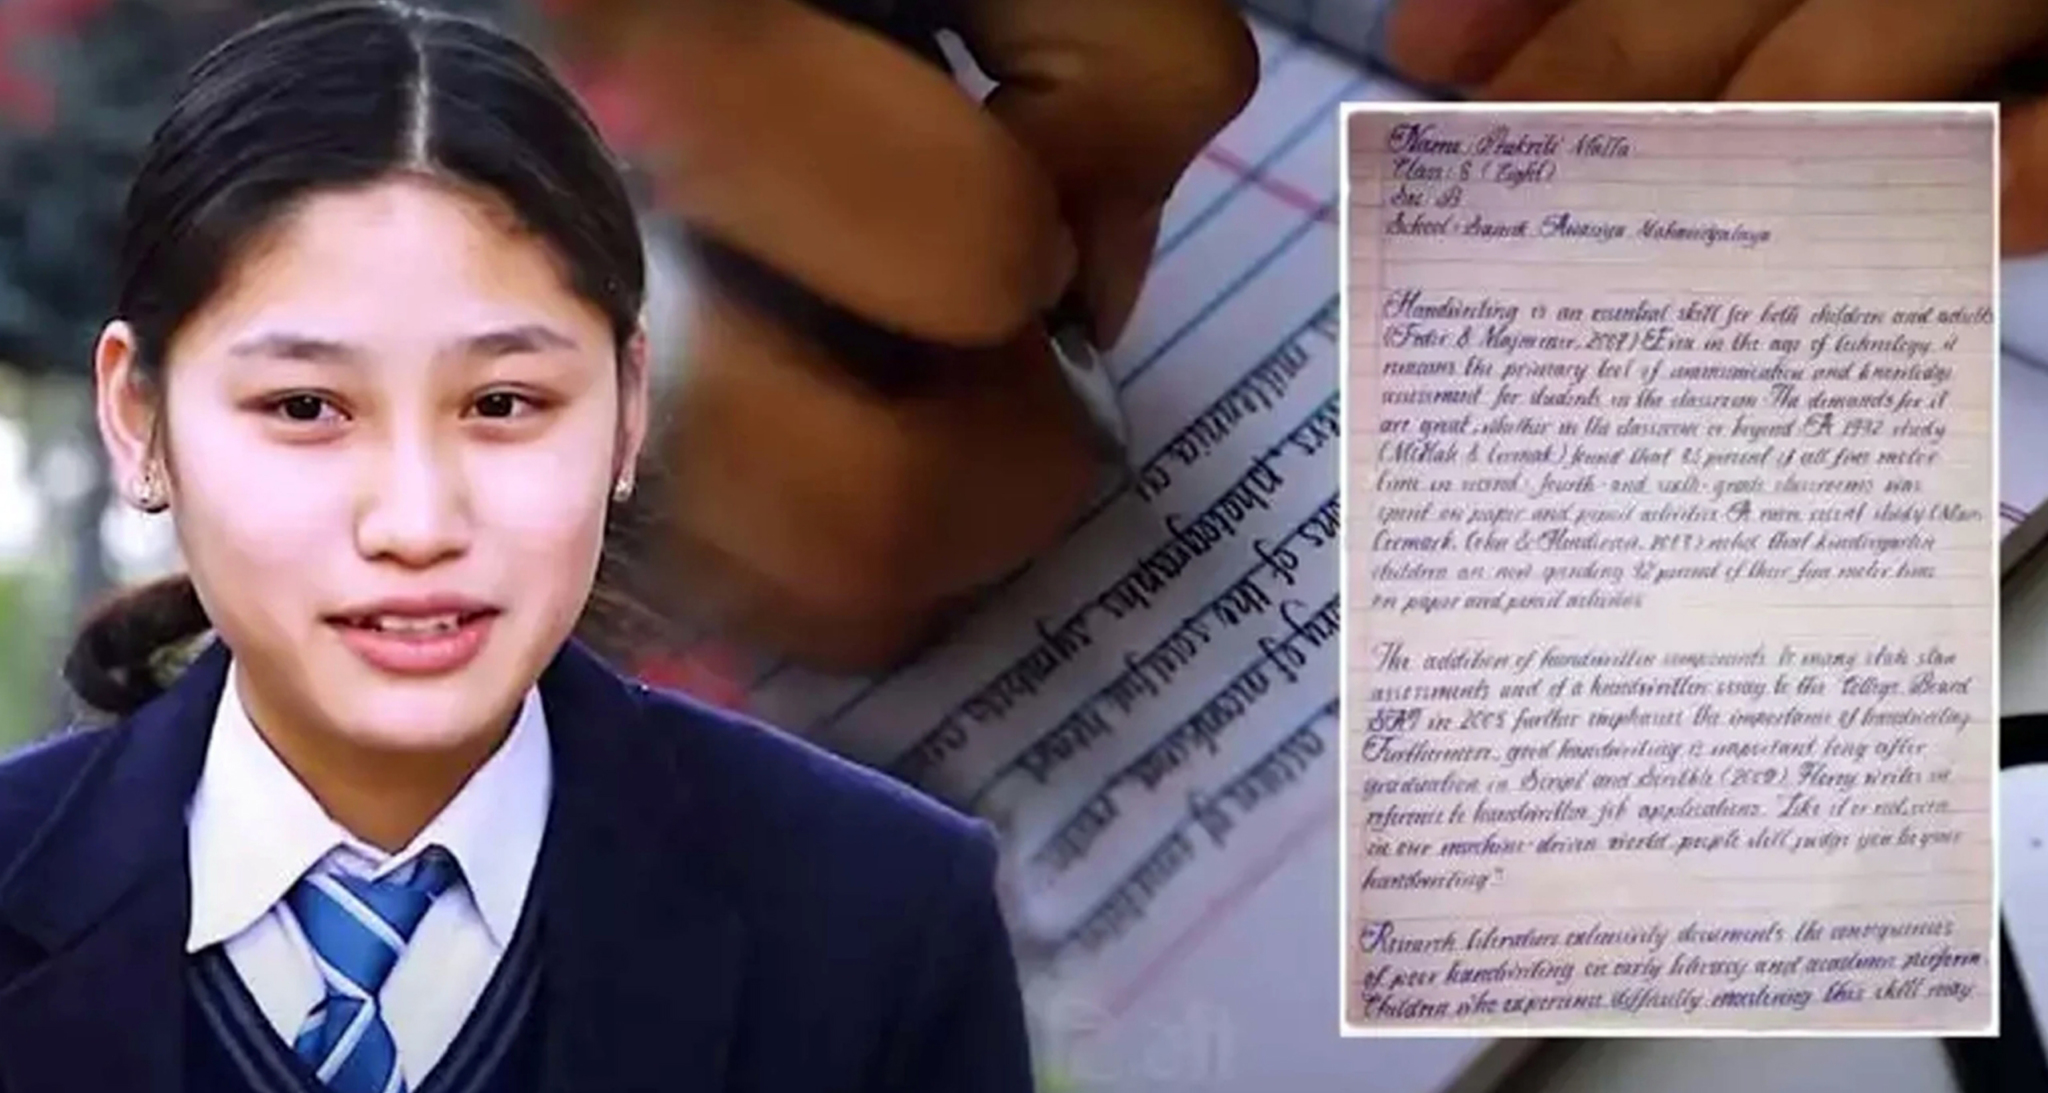 Name: Prakriti Malla
Class: 8 (Eight)
Sec: B
School: Sainik Awasiya Mahavidyalaya
Handwriting is an essential skill for both children and adults
(Feder & Majnemer, 2007) Even in the age of technology, it
remains the primary tool of communication and knowledge
assessment for students in the classroom. The demands for it
are great, whether in the classroom or beyond. A 1992 study
(McHale & Cermak) found that 85 percent of all fine motor
time in second-, fourth- and sixth-grade classrooms was
spent on paper and pencil activities. A more recent study (Marr,
Cermark, Cohn & Henderson, 2003) noted that kindergarten
children are now spending 42 percent of their fine motor time
on paper and pencil activities
The addition of handwritten components to many state
assessments and of a handwritten essay to the College Board
SAT in 2005 further emphasises the importance of handwriting.
Furthermore, good handwriting is important long after
graduation in Script and Scribble (2009) Florey writes in
reference to handwritten job applications. "Like it or not, even
in our machine-driven world, people still judge you by your
handwriting"
Research literature extensively documents the consequences
of poor handwriting on early literacy and academic perform
Children who experience difficulty mastering this skill may
millennia
photographs symbols
of the soulful heart
of